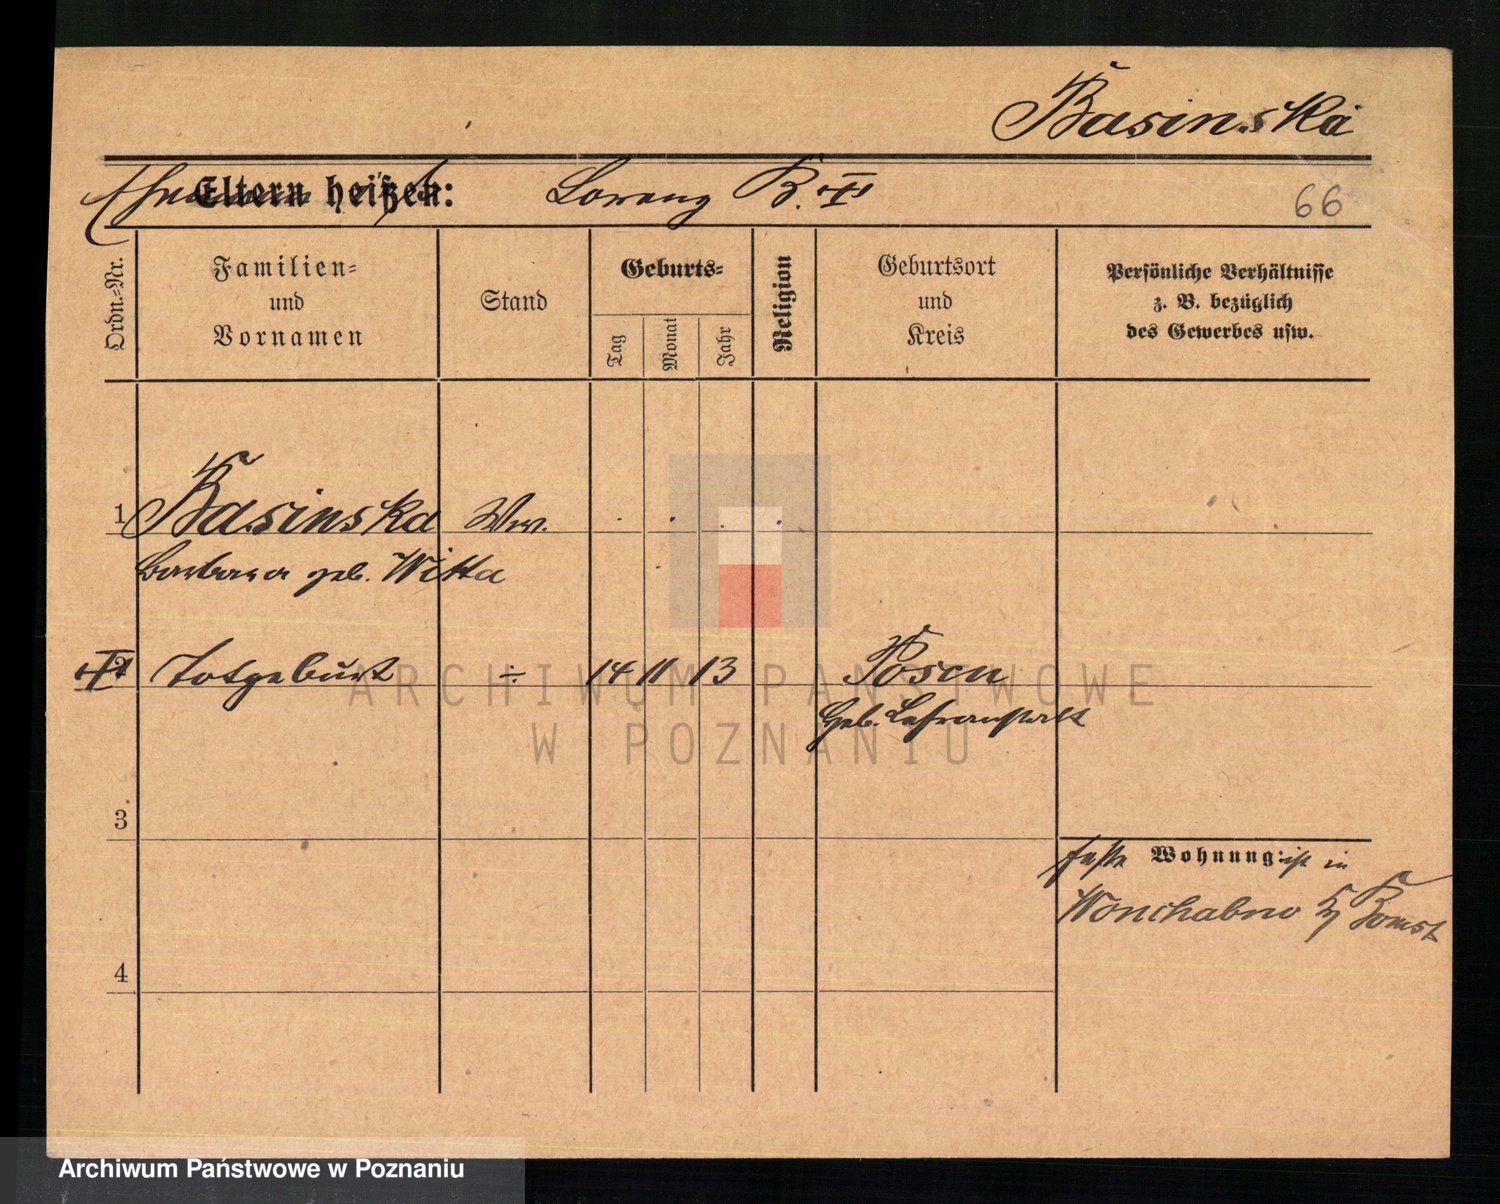 Basinska
Eltern heißen: Lorenz B. †
66
Ordn.-Nr.
Familien-
und
Vornamen
Stand
Geburts-
Tag
Monat
Jahr
Religion
Geburtsort
und
Kreis
Persönliche Verhältnisse
z. B. bezüglich
des Gewerbes usw.
1 Basinska Ww.
Barbara geb. Witta
2 Totgeburt ÷ 14 11 13 Posen
Geb.
ARCHIWUM PAŃSTWOWE
W POZNANIU
3
feste Wohnung: ist in
Wonchabno Bomst
4
Archiwum Państwowe w Poznaniu